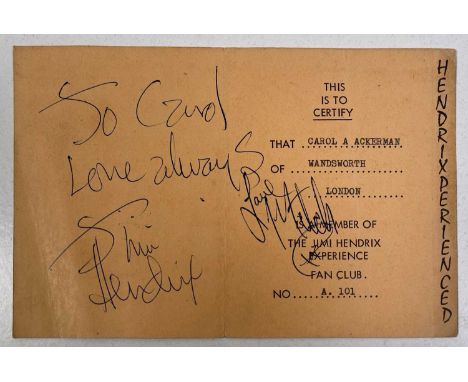 To Carol
Love always
Jimi
Hendrix
THIS
IS TO
CERTIFY
THAT CAROL A ACKERMAN
OF WANDSWORTH
LONDON
Love
Mitch
IS A MEMBER OF
THE JIMI HENDRIX
EXPERIENCE
FAN CLUB.
NO A. 101
HENDRIXPERIENCED